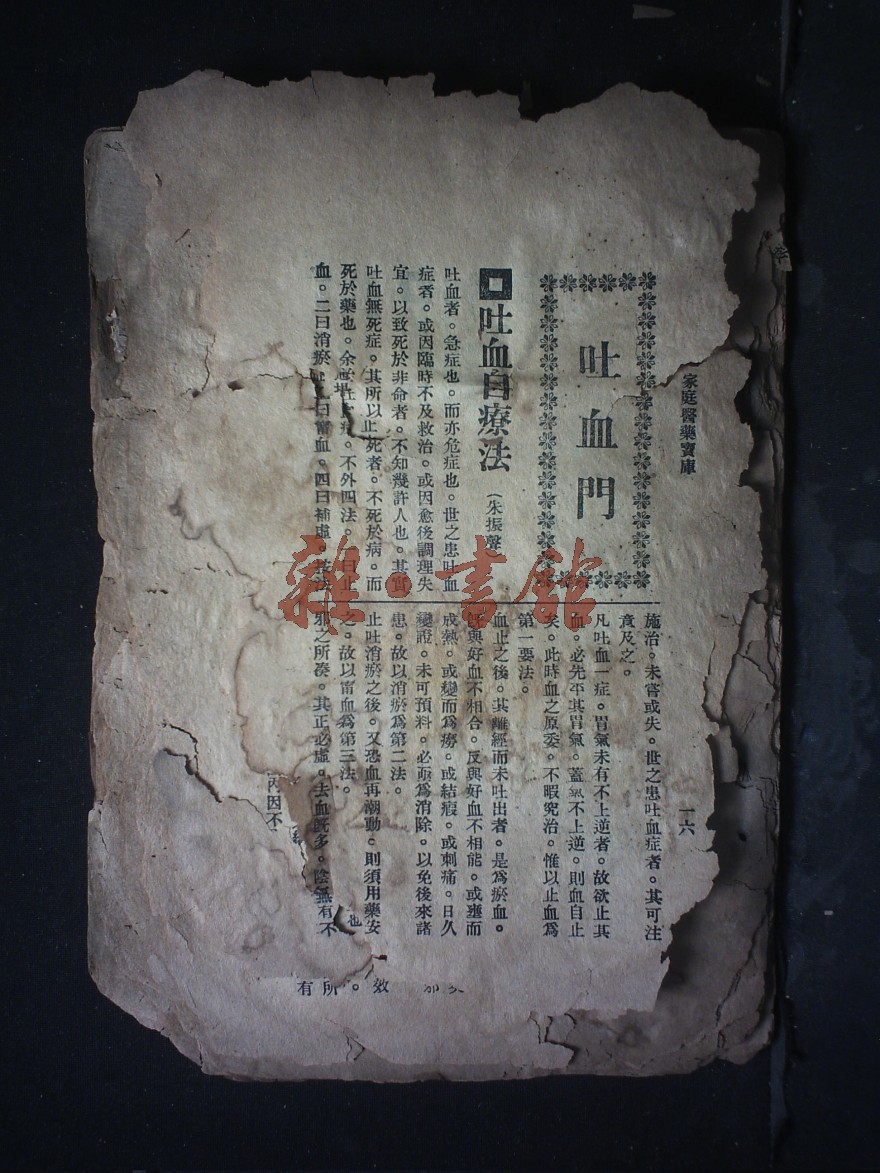 家庭醫藥寶庫
一六
吐血門
吐血自療法
(朱振聲)
吐血者。急症也。而亦危症也。世之患吐血
症者。或因臨時不及救治。或因愈後調理失
宜。以致死於非命者。不知幾許人也。其實
吐血無死症。其所以止死者。不死於病。而
死於藥也。余 不外四法。一曰止
血。二曰消瘀 曰甯血。四曰補虛 按法
施治。未嘗或失。世之患吐血症者。其可注
意及之。
凡吐血一症。胃氣未有不上逆者。故欲止其
血。必先平其胃氣。蓋氣不上逆。則血自止
矣。此時血之原委。不暇究治。惟以止血為
第一要法。
血止之後。其離經而未吐出者。是為瘀血。
既與好血不相合。反與好血不相能。或壅而
成熱。或變而為癆。或結瘕。或刺痛。日久
變證。未可預料。必須為消除。以免後來諸
患。故以消瘀為第二法。
止吐消瘀之後。又恐血再潮動。則須用藥安
之。故以甯血為第三法。
邪之所湊。其正必虛。去血既多。陰無有不
也
內因不
有所。效
雜·書館